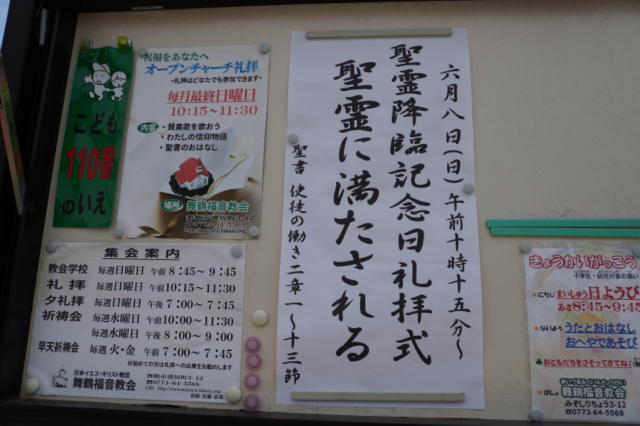 こども
110番
のいえ
祝福をあなたへ
オープンチャーチ礼拝
~礼拝はどなたでも参加できます~
毎月最終日曜日
10:15〜11:30
内容
・賛美歌を歌おう
・わたしの信仰物語
・聖書のおはなし
場所
舞鶴福音教会
六月八日(日)午前十時十五分〜
聖霊降臨記念日礼拝式
聖霊に満たされる
聖書 使徒の働き二章一〜十三節
集会案内
教会学校 毎週日曜日 午前 8:45〜 9:45
礼拝 毎週日曜日 午前 10:15〜11:30
夕礼拝 毎週日曜日 午後 7:00〜 7:45
祈祷会 毎週水曜日 午前 10:00〜11:30
毎週水曜日 午後 8:00〜 9:00
早天祈祷会 毎週 火・金 午前 7:00〜 7:45
※初めての方は礼拝への出席をお勧めします
日本イエス・キリスト教団
舞鶴福音教会
舞鶴市溝尻町3-12
☎0773-64-5568
きょうかいがっこう
小学生・幼児対象の集い
にちじ
まいしゅう日ようび
あさ8:45〜9:45
ないよう
うたとおはなし
おへやであそび
おともだちをさそってきてね!
ばしょ
舞鶴福音教会
みぞしりちょう3-12
☎0773-64-5568